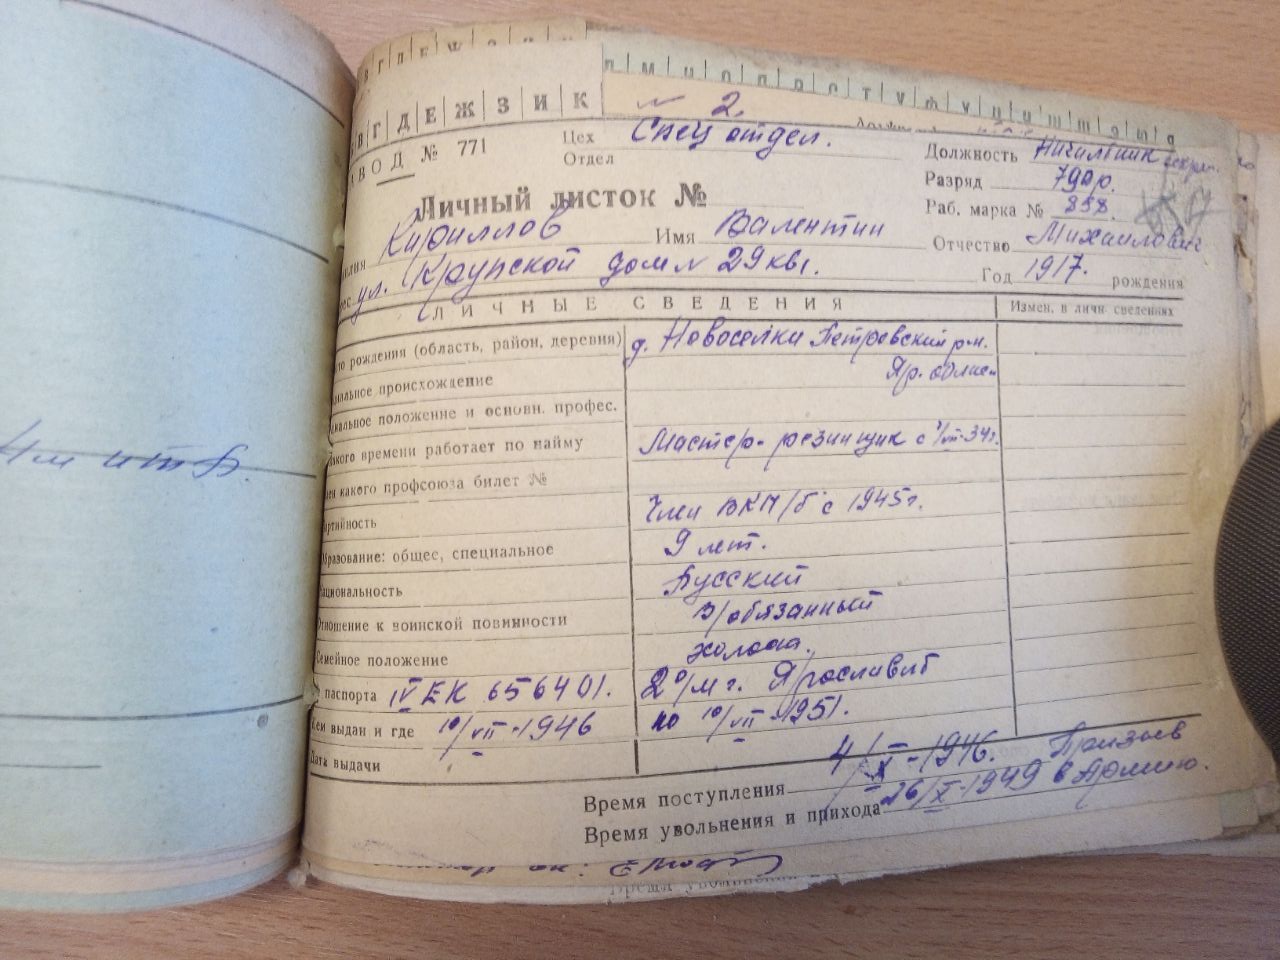 В Г Д Е Ж З
Л М Н О П Р С Т У Ф Х Ц Ч Ш Щ Э Ю Я
В Г Д Е Ж З И К
№ 2.
АВОД № 771
Цех Отдел Спец отдел.
Должность
Разряд 790р.
Раб. марка № 858.
Личный листок №
милия Кириллов Имя Валентин Отчество Михайлович
рес ул. Крупской дом № 29 кв 1. Год 1917. рождения
ЛИЧНЫЕ СВЕДЕНИЯ
Измен. в личн. сведениях
то рождения (область, район, деревня) д. Новоселки Петровский р-н.
Яр. область
иальное происхождение
иальное положение и основн. професс.
какого времени работает по найму Мастер-резинщик с 1/VII-34г.
ен какого профсоюза билет №
артийность Член ВКП/б с 1945г.
бразование: общее, специальное 9 лет.
ациональность Русский
тношение к воинской повинности В/обязанный
Семейное положение холост.
паспорта IV ЕК 656401. 2 о/м г. Ярославль
ем выдан и где 10/VII-1946 по 10/VII-1951.
Дата выдачи
Время поступления 4/X-1946. Призыв
Время увольнения и прихода 26/X-1949 в Армию.